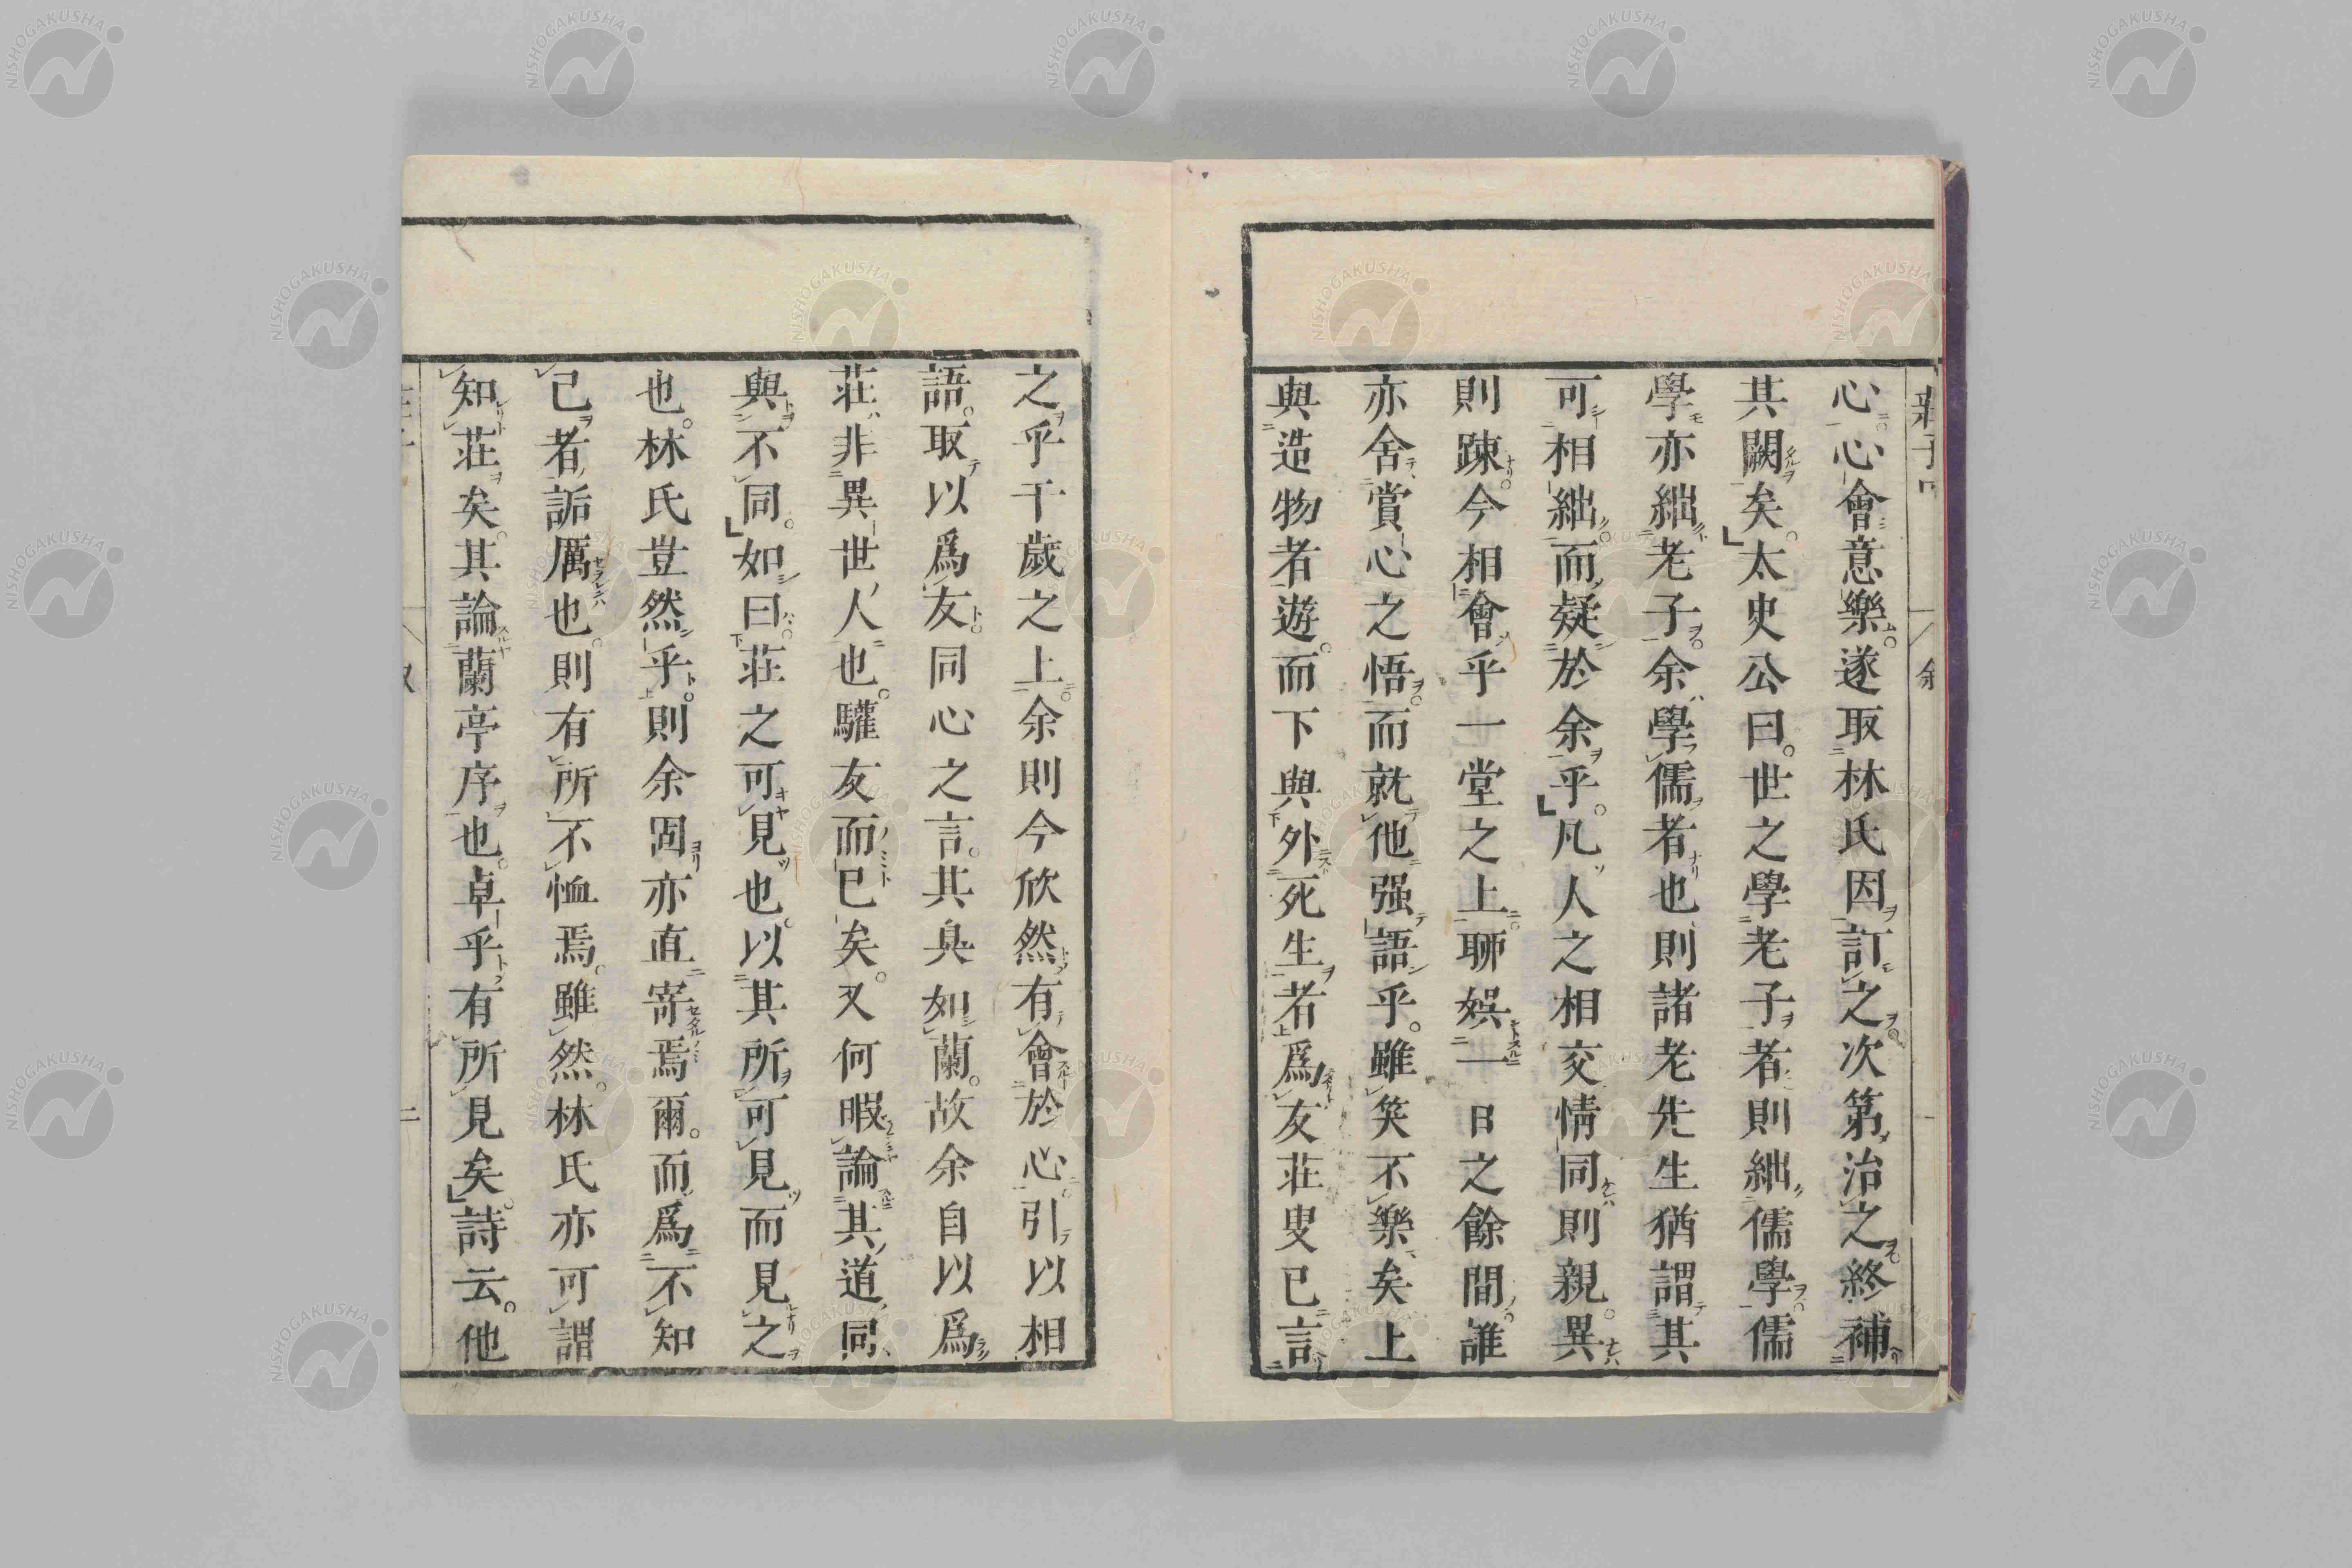 心心會意樂。遂取林氏因訂之次第治之終補
其闕矣。太史公曰。世之學老子者則絀儒學儒
學亦絀老子。余學儒者也則諸老先生猶謂其
可相絀。而疑於余乎。凡人之相交情同則親。異
則踈。今相會乎一堂之上。聊娯一日之餘間。誰
亦舍賞心之悟。而就他强語乎。雖笑不樂矣上
與造物者遊。而下與外死生者爲友莊叟已言
之乎千歲之上。余則今欣然有會於心。引以相
語。取以爲友。同心之言。其臭如蘭。故余自以爲
莊非異世人也。驩友而已矣。又何暇論其道同
與不同。如曰。莊之可見也。以其所可見而見之
也。林氏豈然乎。則余固亦直寄焉爾。而爲不知
己者詬厲也。則有所不恤焉。雖然。林氏亦可謂
知莊矣。其論蘭亭序也。卓乎有所見矣。詩云。他
NISHOGAKUSHA